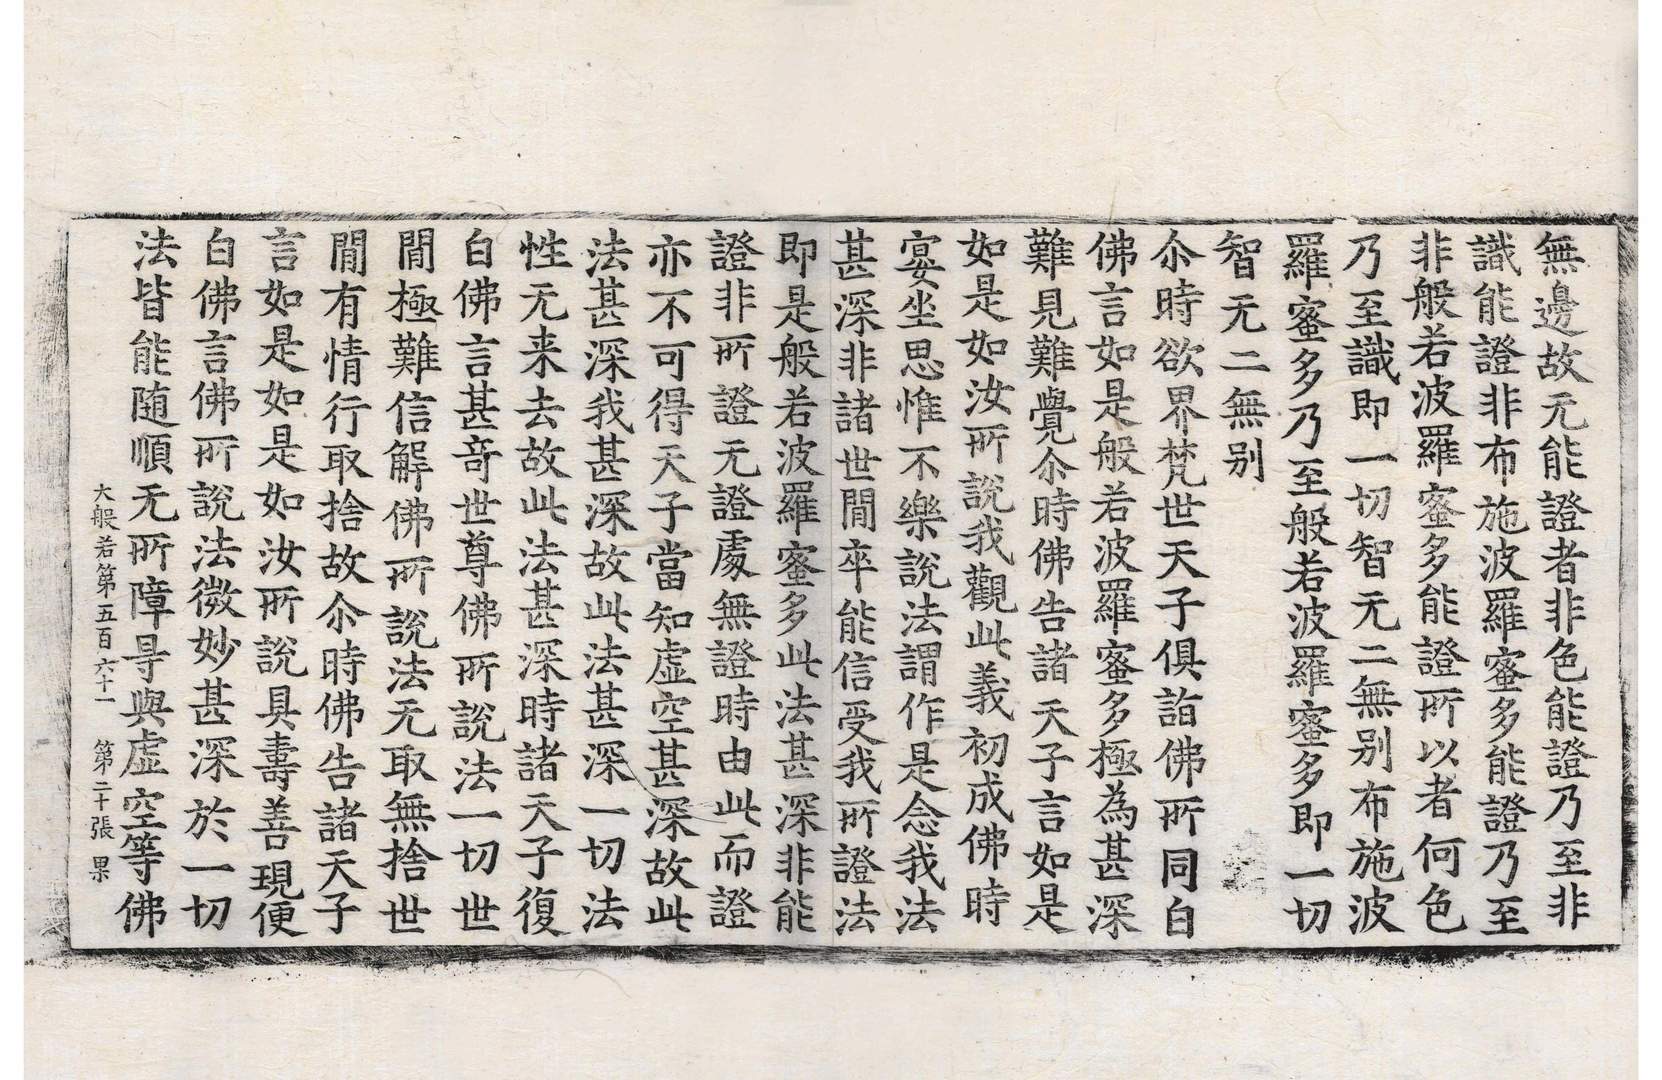 無邊故无能證者非色能證乃至非
識能證非布施波羅蜜多能證乃至
非般若波羅蜜多能證所以者何色
乃至識即一切智无二無别布施波
羅蜜多乃至般若波羅蜜多即一切
智无二無别
尒時欲界梵世天子俱詣佛所同白
佛言如是般若波羅蜜多極為甚深
難見難覺尒時佛告諸天子言如是
如是如汝所說我觀此義初成佛時
宴坐思惟不樂說法謂作是念我法
甚深非諸世間卒能信受我所證法
即是般若波羅蜜多此法甚深非能
證非所證无證處無證時由此而證
亦不可得天子當知虛空甚深故此
法甚深我甚深故此法甚深一切法
性无来去故此法甚深時諸天子復
白佛言甚奇世尊佛所說法一切世
間極難信解佛所說法无取無捨世
間有情行取捨故尒時佛告諸天子
言如是如是如汝所說具壽善現便
白佛言佛所說法微妙甚深於一切
法皆能随順无所障㝵與虛空等佛
大般若第五百六十一 第二十張 果